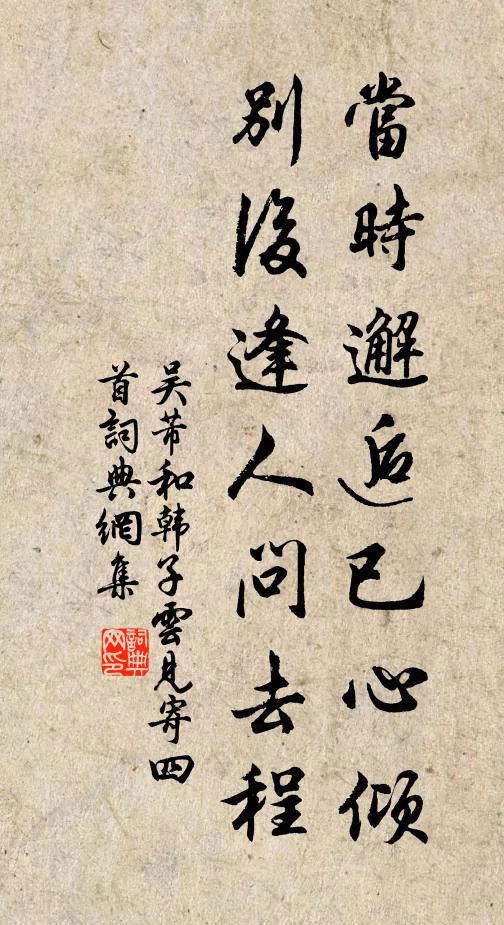 當時邂逅已心傾
別後逢人問去程
吴芾和韩子雲見寄四
首詞典網集
詞典網印